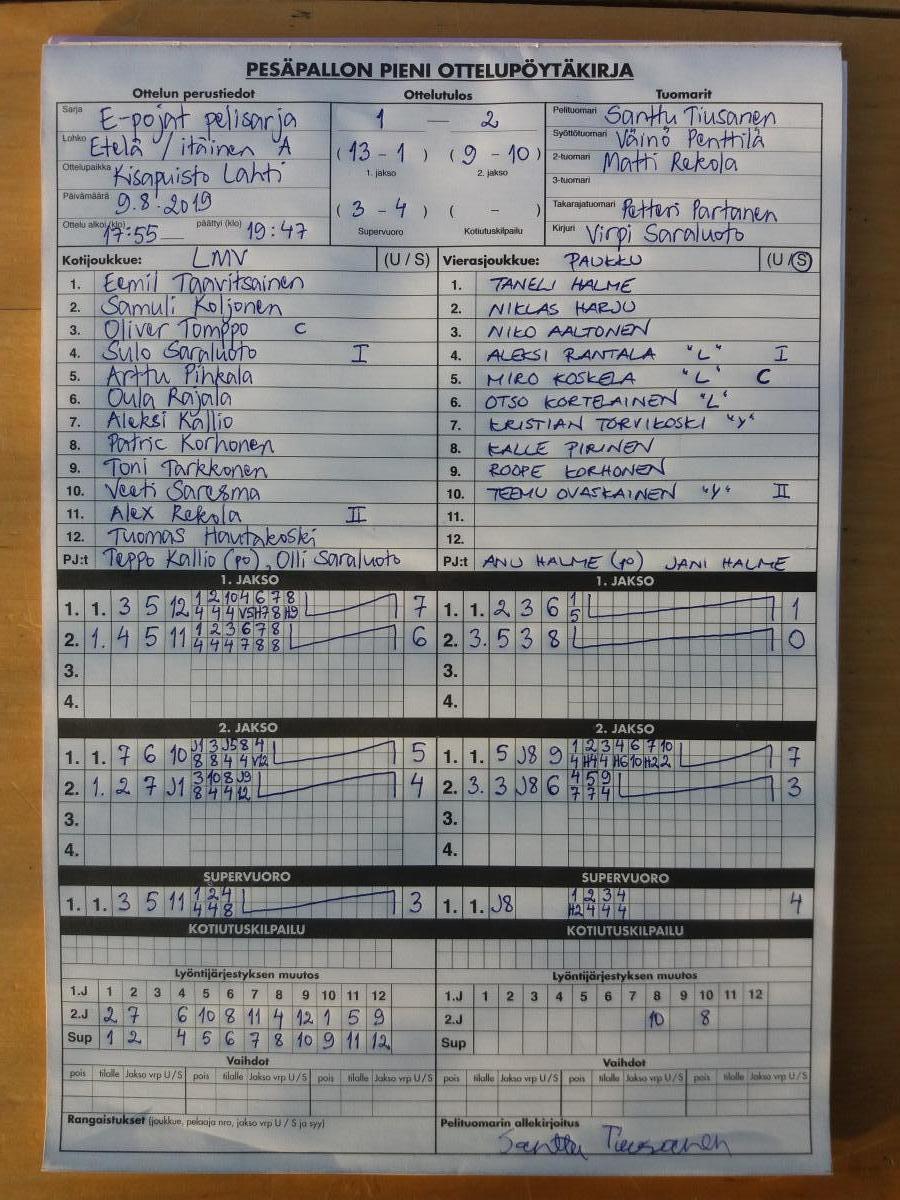 PESÄPALLON PIENI OTTELUPÖYTÄKIRJA
Ottelun perustiedot Ottelutulos Tuomarit
Sarja E-pojat pelisarja
Lohko Etelä / itäinen A
Ottelupaikka Kisapuisto Lahti
Päivämäärä 9.8.2019
Ottelu alkoi (klo) 17:55 päättyi (klo) 19:47
1 — 2
(13 - 1) (9 - 10)
1. jakso 2. jakso
(3 - 4) ( - )
Supervuoro Kotiutuskilpailu
Pelituomari Santtu Tiusanen
Syöttötuomari Väinö Penttilä
2-tuomari Matti Rekola
3-tuomari
Takarajatuomari Petteri Partanen
Kirjuri Virpi Saraluoto
Kotijoukkue: LMV (U / S)
1. Eemil Taavitsainen
2. Samuli Koljonen
3. Oliver Tomppo C
4. Sulo Saraluoto I
5. Arttu Pihkala
6. Oula Rajala
7. Aleksi Kallio
8. Patric Korhonen
9. Toni Tarkkonen
10. Veeti Saresma
11. Alex Rekola II
12. Tuomas Hautakoski
PJ:t Teppo Kallio (po), Olli Saraluoto
Vierasjoukkue: PAUKKU (U / S)
1. TANELI HALME
2. NIKLAS HARJU
3. NIKO AALTONEN
4. ALEKSI RANTALA "L" I
5. MIRO KOSKELA "L" C
6. OTSO KORTELAINEN "L"
7. KRISTIAN TORVIKOSKI "Y"
8. KALLE PIRINEN
9. ROOPE KORHONEN
10. TEEMU OVASKAINEN "Y" II
11.
12.
PJ:t ANU HALME (po) JANI HALME
1. JAKSO
1. 1. 3 5 12 1 2 10 4 6 7 8 7
4 4 4 V5 H7 8 H9
2. 1. 4 5 11 1 2 3 6 7 8 6
4 4 4 7 8 8
3.
4.
1. JAKSO
1. 1. 2 3 6 1 1
5
2. 3. 5 3 8 0
3.
4.
2. JAKSO
1. 1. 7 6 10 J1 3 J5 8 4 5
8 8 4 4 V12
2. 1. 2 7 J1 3 10 8 J9 4
8 4 4 12
3.
4.
2. JAKSO
1. 1. 5 J8 9 1 2 3 4 6 7 10 7
4 H4 4 H6 10 H2 2
2. 3. 3 J8 6 4 5 9 3
7 7 4
3.
4.
SUPERVUORO
1. 1. 3 5 11 1 2 4 3
4 4 8
SUPERVUORO
1. 1. J8 1 2 3 4 4
H2 4 4 4
KOTIUTUSKILPAILU
KOTIUTUSKILPAILU
Lyöntijärjestyksen muutos
1.J 1 2 3 4 5 6 7 8 9 10 11 12
2.J 2 7 6 10 8 11 4 12 1 5 9
Sup 1 2 4 5 6 7 8 10 9 11 12
Lyöntijärjestyksen muutos
1.J 1 2 3 4 5 6 7 8 9 10 11 12
2.J 10 8
Sup
Vaihdot
pois tilalle Jakso vrp U / S pois tilalle Jakso vrp U / S pois tilalle Jakso vrp U / S
Vaihdot
pois tilalle Jakso vrp U / S pois tilalle Jakso vrp U / S pois tilalle Jakso vrp U / S
Rangaistukset (joukkue, pelaaja nro, jakso vrp U / S ja syy)
Pelituomarin allekirjoitus
Santtu Tiusanen